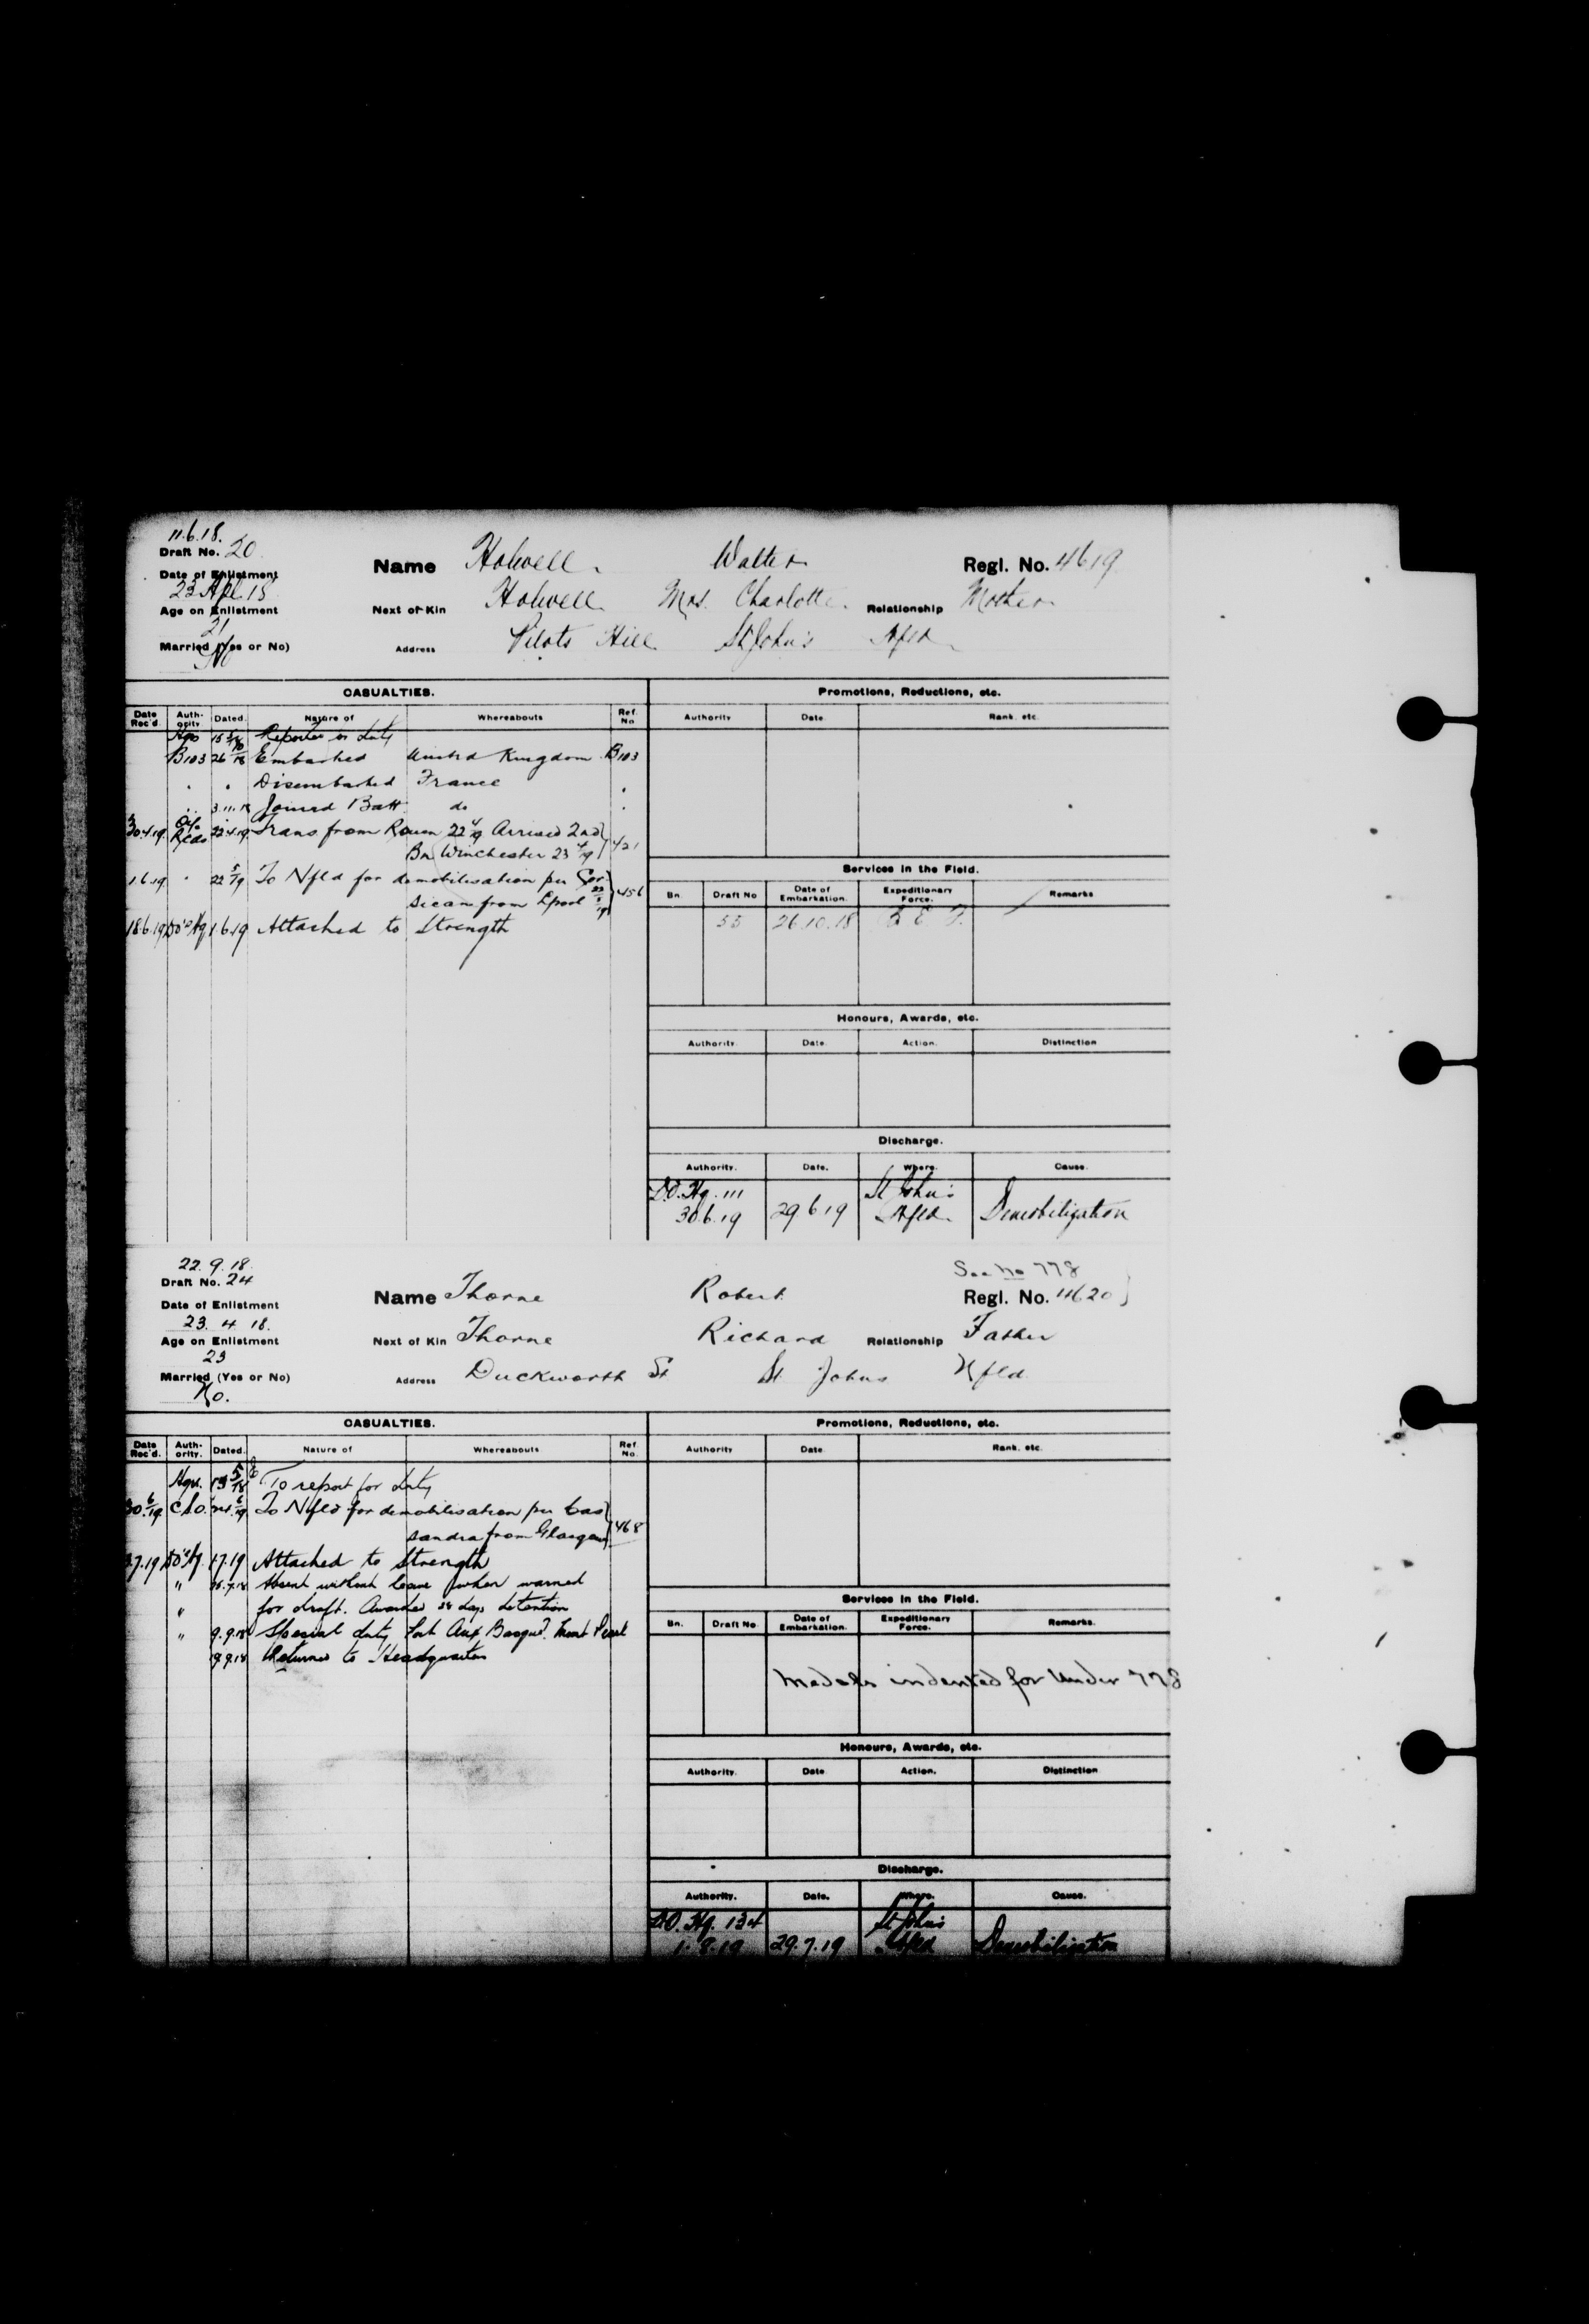 11.6.18.
Draft No. 20
Name Holwell Walter Regl. No. 4619
Date of Enlistment
23 Apl 18
Next of Kin Holwell Mrs. Charlotte Relationship Mother
Age on Enlistment
21
Address Pilots Hill St John's Nfld
Married (Yes or No)
No
CASUALTIES.
Date Rec'd. Auth-ority Dated. Nature of Whereabouts Ref. No
Reported for duty
B103 26 10/18 Embarked United Kingdom B103
" " Disembarked France "
3.11.18 Joined Batt do "
30.4.19 Rcds 22.4.19 Trans from Rouen 22 4/19 Arrived 2nd
Bn Winchester 23 4/19 421
1.6.19 " 22 5/19 To Nfld for demobilisation per Cor
sican from Lpool 22 5/19 456
18.6.19 1.6.19 Attached to Strength
Promotions, Reductions, etc.
Authority Date Rank. etc.
Services in the Field.
Bn. Draft No Date of Embarkation. Expeditionary Force. Remarks
55 26.10.18 B. E. F.
Honours, Awards, etc.
Authority. Date. Action. Distinction
Discharge.
Authority. Date. Where. Cause.
D.O. Hq. 111 St John's
30.6.19 29 6 19 Nfld Demobilization
22. 9. 18.
Draft No. 24
See No 778
Name Thorne Robert Regl. No. 4620
Date of Enlistment
23. 4 18.
Next of Kin Thorne Richard Relationship Father
Age on Enlistment
23
Address Duckworth St St Johns Nfld
Married (Yes or No)
No.
CASUALTIES.
Date Rec'd. Auth-ority. Dated. Nature of Whereabouts Ref. No.
5/18 To report for duty
30 6/19 6/19 To Nfld for demobilisation per Cas
sandra from Glasgow 468
1.7.19 Attached to Strength
" Absent without leave when warned
" for draft. Awarded 28 days detention
" 9.9.18 Special duty Port Aux Basque. Mount Pearl
Returned to Headquarters
Promotions, Reductions, etc.
Authority Date. Rank. etc.
Services in the Field.
Bn. Draft No Date of Embarkation. Expeditionary Force. Remarks.
Medals indented for under 778
Honours, Awards, etc.
Authority. Date Action. Distinction
Discharge.
Authority. Date. Where. Cause.
D.O. Hq. 134 St John's
1. 8.19 29.7.19 Nfld Demobilization